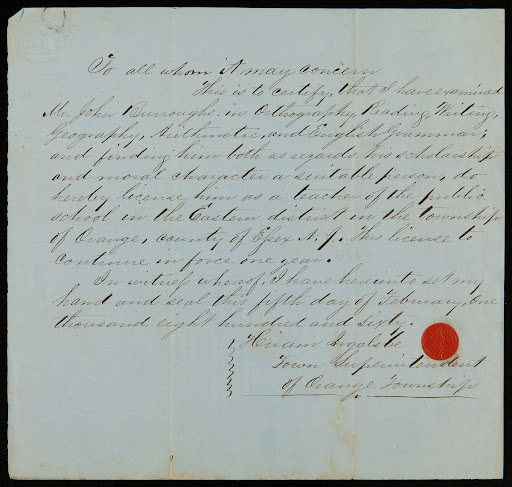 To all whom it may concern
This is to certify, that I have examined
Mr. John Burroughs, in Orthography, Reading, Writing,
Geography, Arithmetic, and English Grammar;
and finding him both as regards his scholarship
and moral character a suitable person, do
hereby license him as a teacher of the public
school in the Eastern district in the township
of Orange, county of Essex N. J. This license to
continue in force one year.
In witness whereof, I have hereunto set my
hand and seal this fifth day of February, one
thousand eight hundred and sixty.
Hiram Ingalsbe
Town Superintendent
of Orange Township